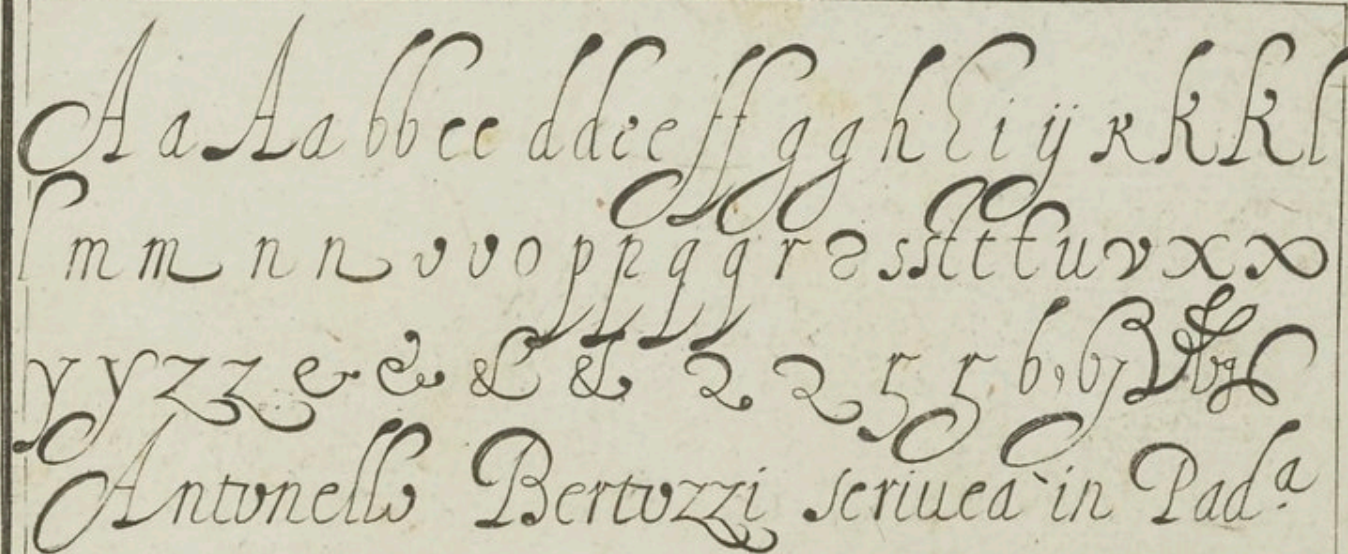 A a A a b b c c d d e e f f g g h h i ij k k k l
l m m n n o o o p p q q r r s st t t u v x x
y y z z & & & & 2 2 5 5 b9 b9
Antonello Bertozzi scriuea in Pad.a